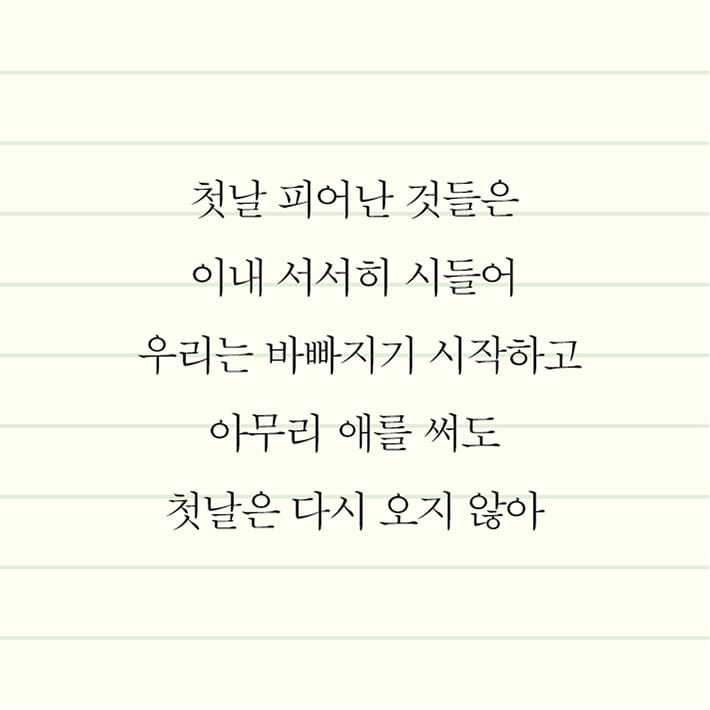 첫날 피어난 것들은
이내 서서히 시들어
우리는 바빠지기 시작하고
아무리 애를 써도
첫날은 다시 오지 않아